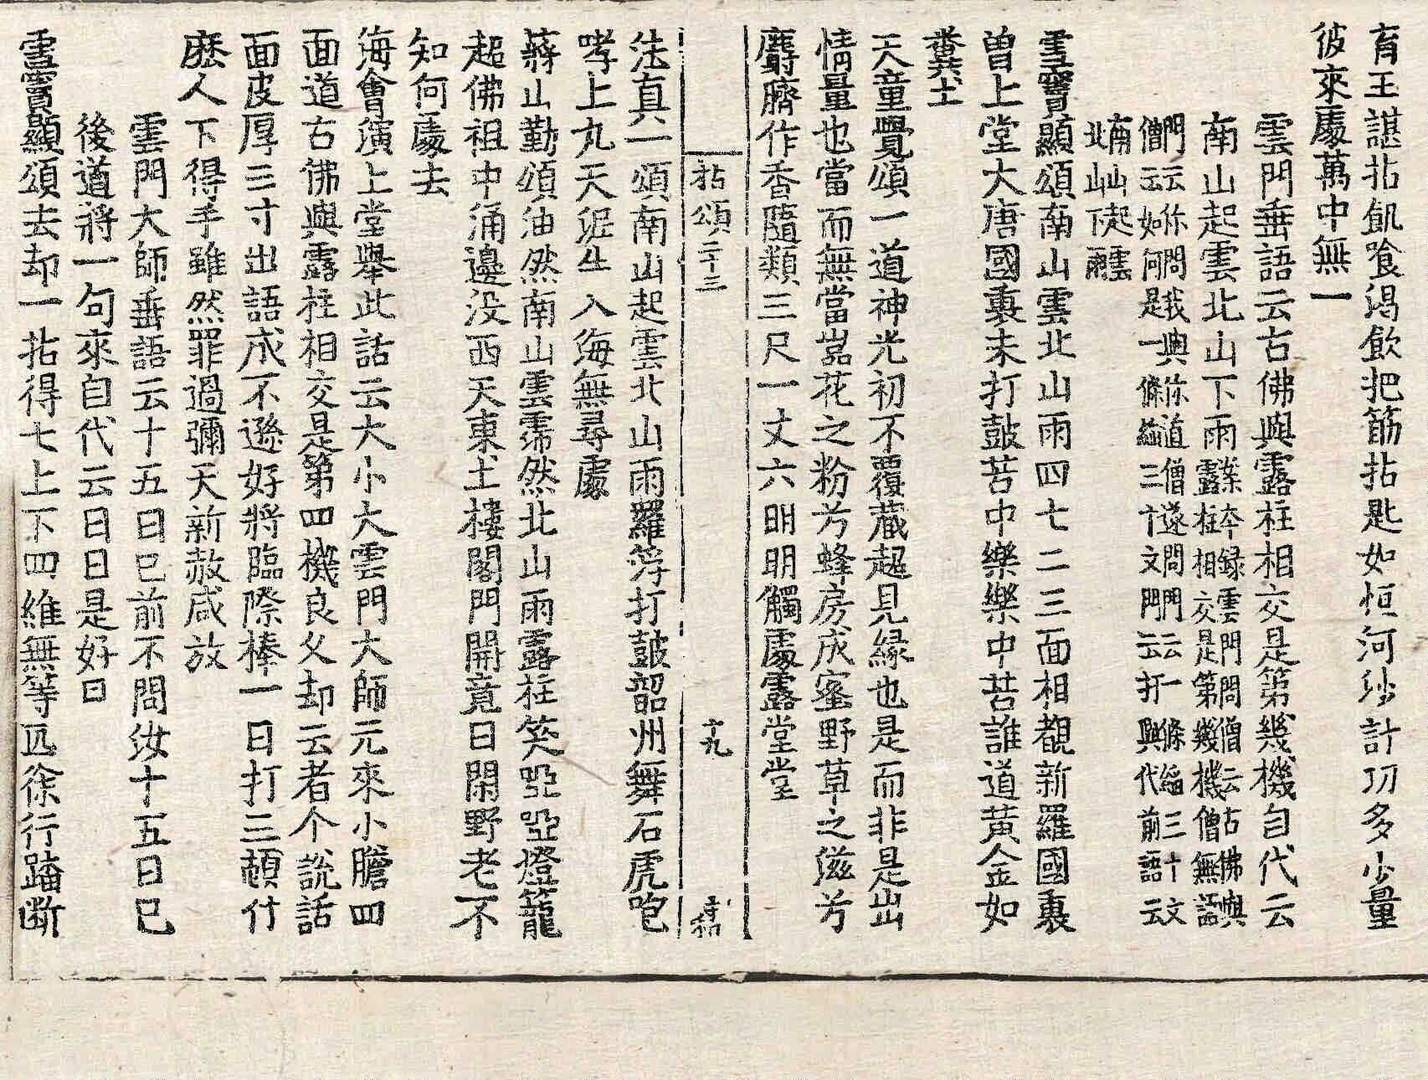 育王諶拈飢飡渴飲把筯拈匙如恒河沙計功多少量
彼來處萬中無一
雲門垂語云古佛與露柱相交是第幾機自代云
南山起雲北山下雨葉本録雲門問僧云古佛與
露柱相交是第幾機僧無語
門云你問我與你道僧遂問門云一條絛三十文
僧云如何是一條絛三十文門云打與代前語云
南山起雲
北山下雨
雪竇顯頌南山雲北山雨四七二三面相覩新羅國裏
曽上堂大唐國裏未打鼓苦中樂樂中苦誰道黃金如
糞土
天童覺頌一道神光初不覆蔵超見縁也是而非是出
情量也當而無當嵓花之粉兮蜂房成蜜野草之滋兮
麝臍作香隨類三尺一丈六明明觸處露堂堂
拈頌二十三
十九
法真一頌南山起雲北山雨羅浮打鼓韶州舞石虎咆
哮上丸天泥牛入海無尋處
蔣山勤頌油然南山雲霈然北山雨露柱笑呵呵燈籠
超佛祖中涌邊没西天東土樓閣門開竟日閑野老不
知何處去
海會演上堂舉此話云大小大雲門大師元來小膽四
面道古佛與露柱相交是第四機良久却云者个說話
面皮厚三寸出語成不遜好將臨際棒一日打三頓什
麽人下得手雖然罪過彌天新赦咸放
雲門大師垂語云十五日已前不問汝十五日已
後道將一句來自代云日日是好日
雪竇顯頌去却一拈得七上下四維無等匹徐行踏断